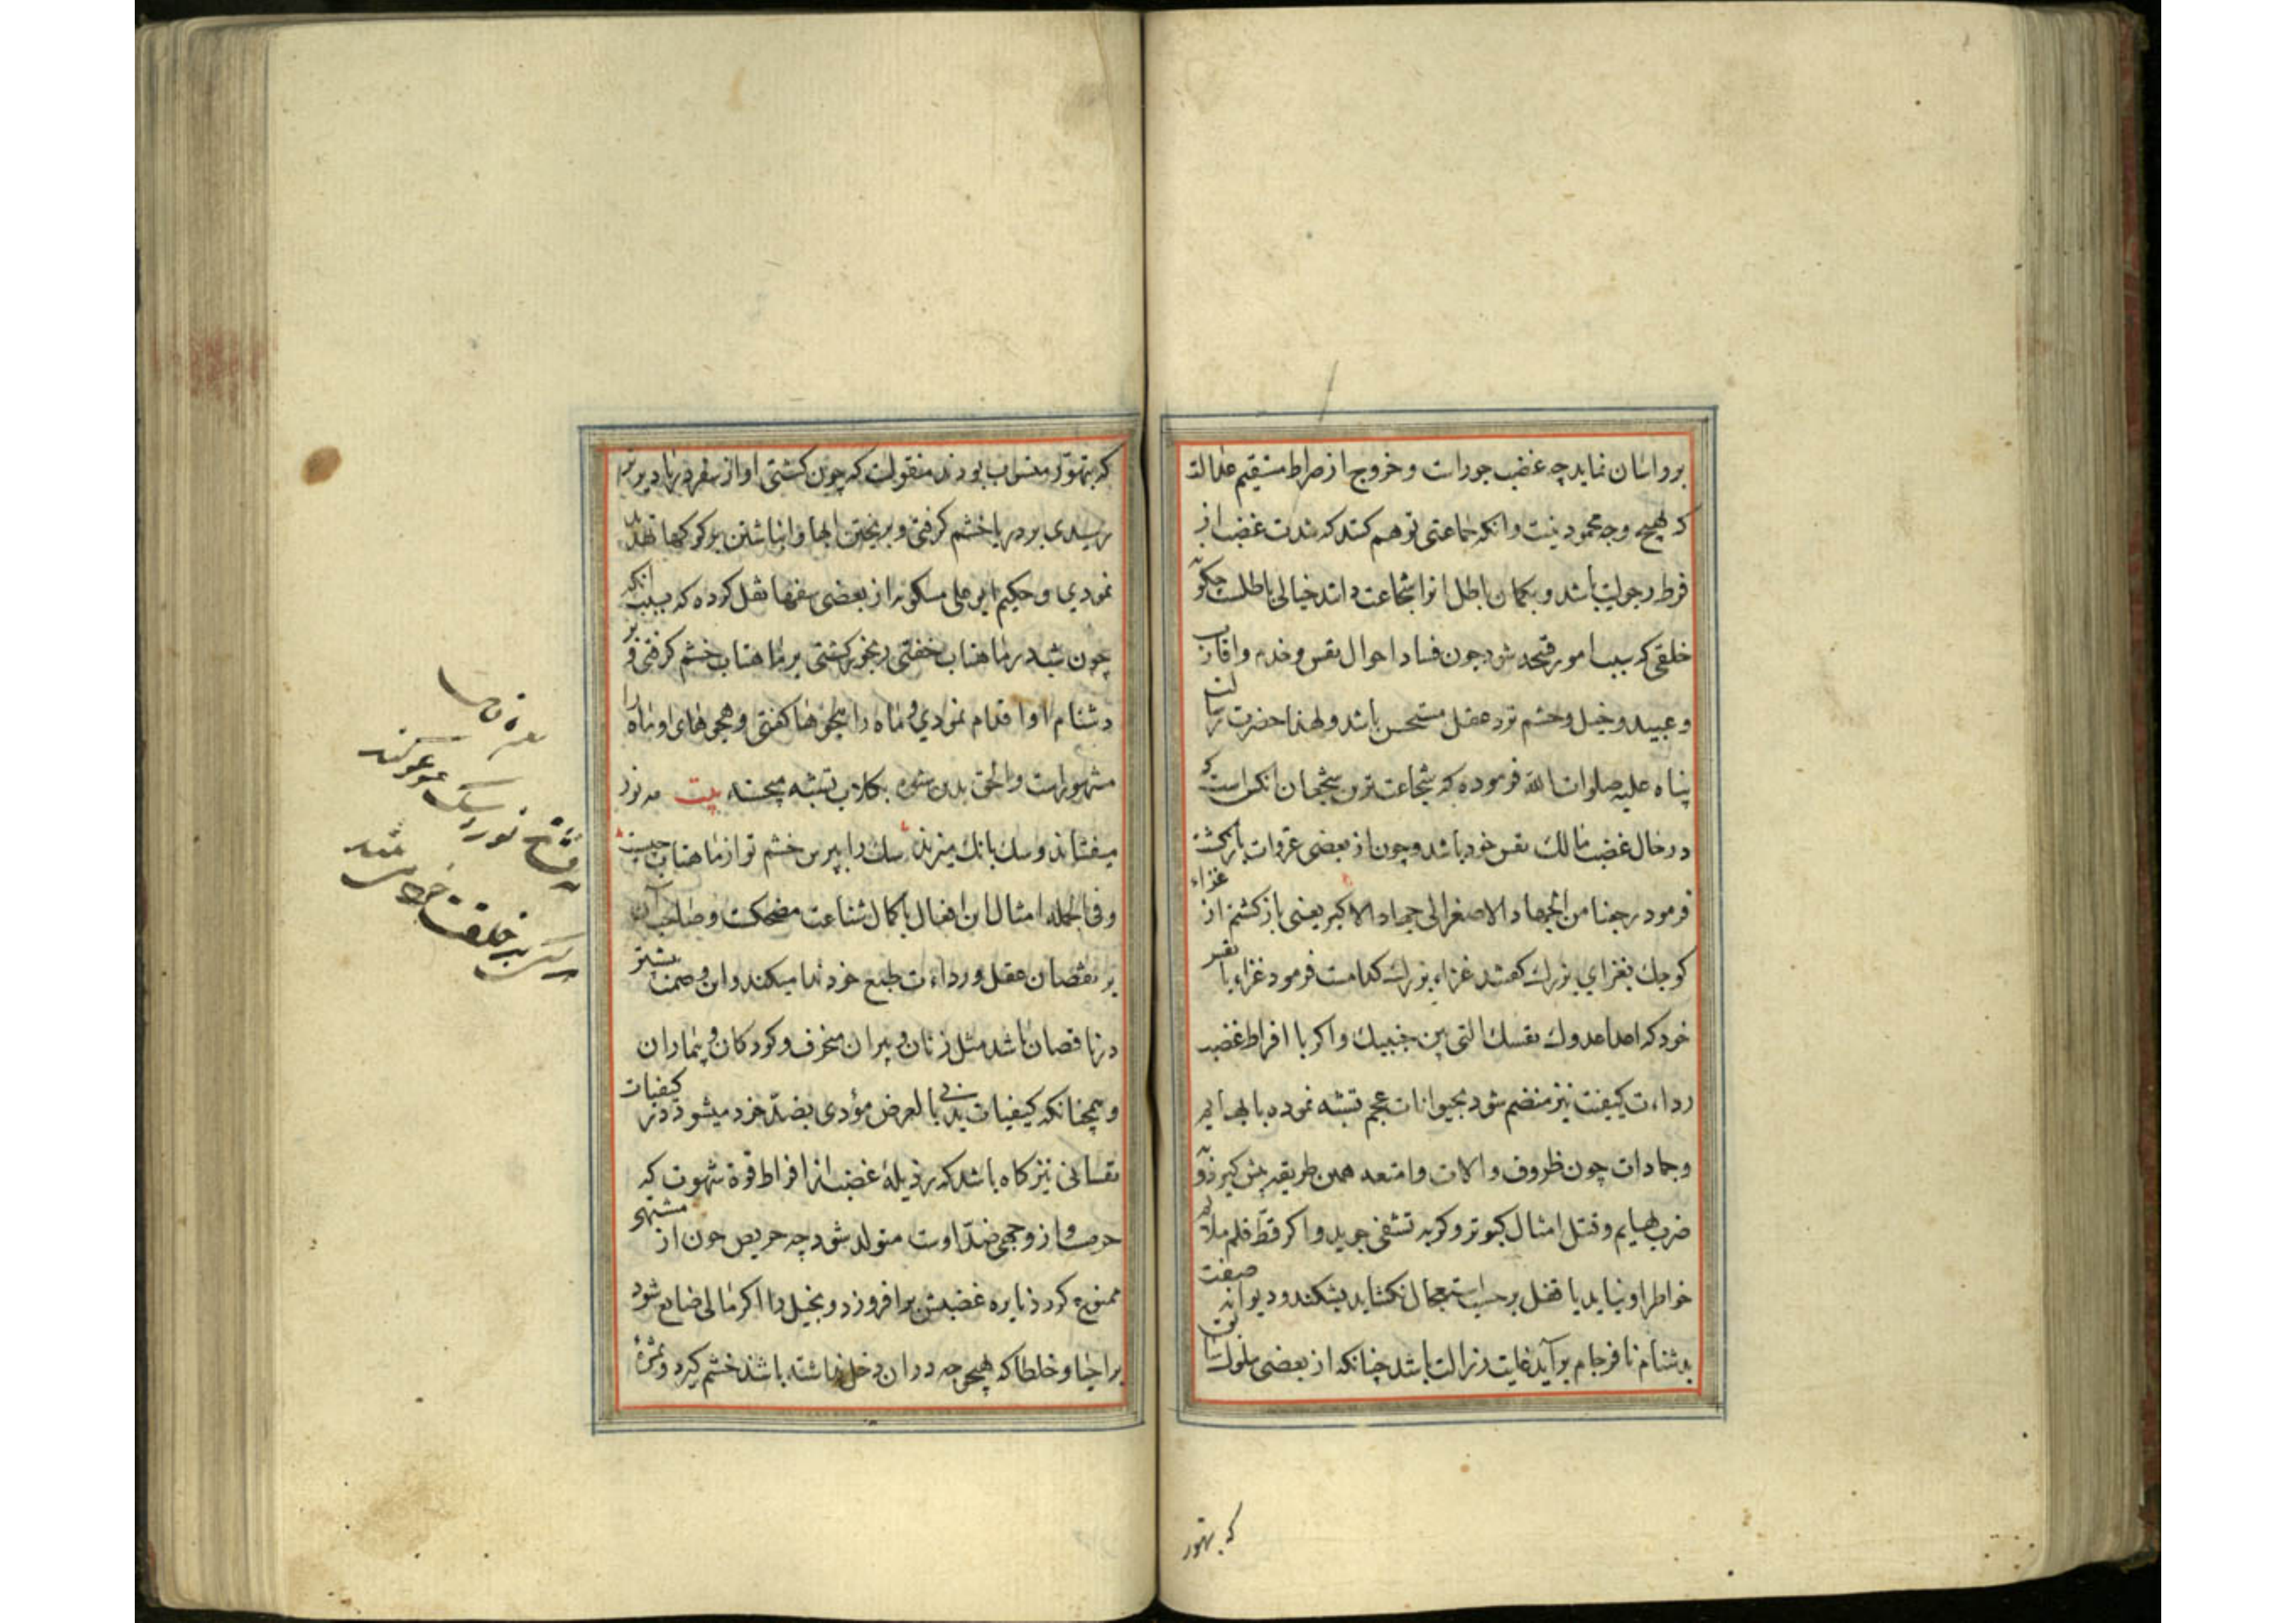 بر و اسان نماید چه غضب جورات و خروج از صراط مستقیم عدالة
که بهیچ وجه محمود نیست و انکه جماعتی توهم کنند که شدت غضب از
فرط رجولیت باشد و بکمان باطل انرا شجاعت دانند خیالی باطلست چکونه
خلقی که سبب امور قبیحه شود چون فساد احوال نفس و خدم و اقارب
و عبید و خیل و حشم نزد عقل مستحسن باشد و لهذا حضرت رسالت
پناه علیه صلوات الله فرموده که شجاعت ترین شجعان انکس است که
در حال غضب مالک نفس خود باشد و چون از بعضی غزوات بازکشت
فرمود رجعنا من الجهاد الاصغر الی جهاد الاکبر یعنی بازکشتم از غزاء
کوچک بغزای بزرک کفتند غزاء بزرک کدامست فرمود غزاء با نفس
خود که اعدا عدوک نفسک التی بین جنبیک و اکر با افراط غضب
رداءت کیفیت نیز منضم شود بحیوانات عجم تشبه نموده با بهایم
و جمادات چون ظروف و الات و امتعه همین طریقه پیش کیرد و
ضرب بهایم و قتل امثال کبوتر و کربه تشفی جوید و اکر قط قلم ملایم
خواطر او نیاید یا قفل بر حسب استعجال نکشاید بشکند و دیوانه صفت
بدشنام نافرجام برآید غایت رذالت باشد چنانکه از بعضی ملوک سابق
که بتهور
که بتهور منسوب بودند منقولست که چون کشتی او از سفر دریا دیرتر
رسیدی بر دریا خشم کرفتی و بریختن ابها و انباشتن بر کوهها تهدید
نمودی و حکیم ابو علی مسکویه از بعضی سفها نقل کرده که بسبب انکه
چون شب در ماهتاب خفتی رنجور کشتی بر ماهتاب خشم کرفتی و بر
دشنام او اقدام نمودی و ماه را هجوها کفتی و هجوهای او ماه را
مشهور است و الحق بدین شیوه بکلاب تشبه میجسته بیت مه نور
میفشاند و سک بانک میزند سک را بپرس خشم تو از ماهتاب چیست
و فی الجمله امثال این افعال با کمال شناعت مضحکست و صاحب آن
بر نقصان عقل و رداءت طبع خود ندا میکند و این وصمت بیشتر
در ناقصان باشد مثل زنان و پیران منحرف و کودکان و بیماران
و همچنانکه کیفیات بدنی بالعرض مؤدی بضد خود میشود در کیفیات
نفسانی نیز کاه باشد که رذیله غضب از افراط قوة شهوت که
حرصست و از وجهی ضد اوست متولد شود چه حریص چون از مشتهی
ممنوع کردد نایره غضبش برافروزد و بخیل را اکر مالی ضایع شود
بر احبا و خلطا که بهیچ وجه در ان دخل نداشته باشند خشم کیرد و ثمرهٔ
مه فشاند نور و سک عوعو کند
هر کسی بر خلقت خود می تند